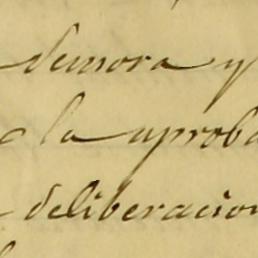 demora y
la aproba
deliberacion